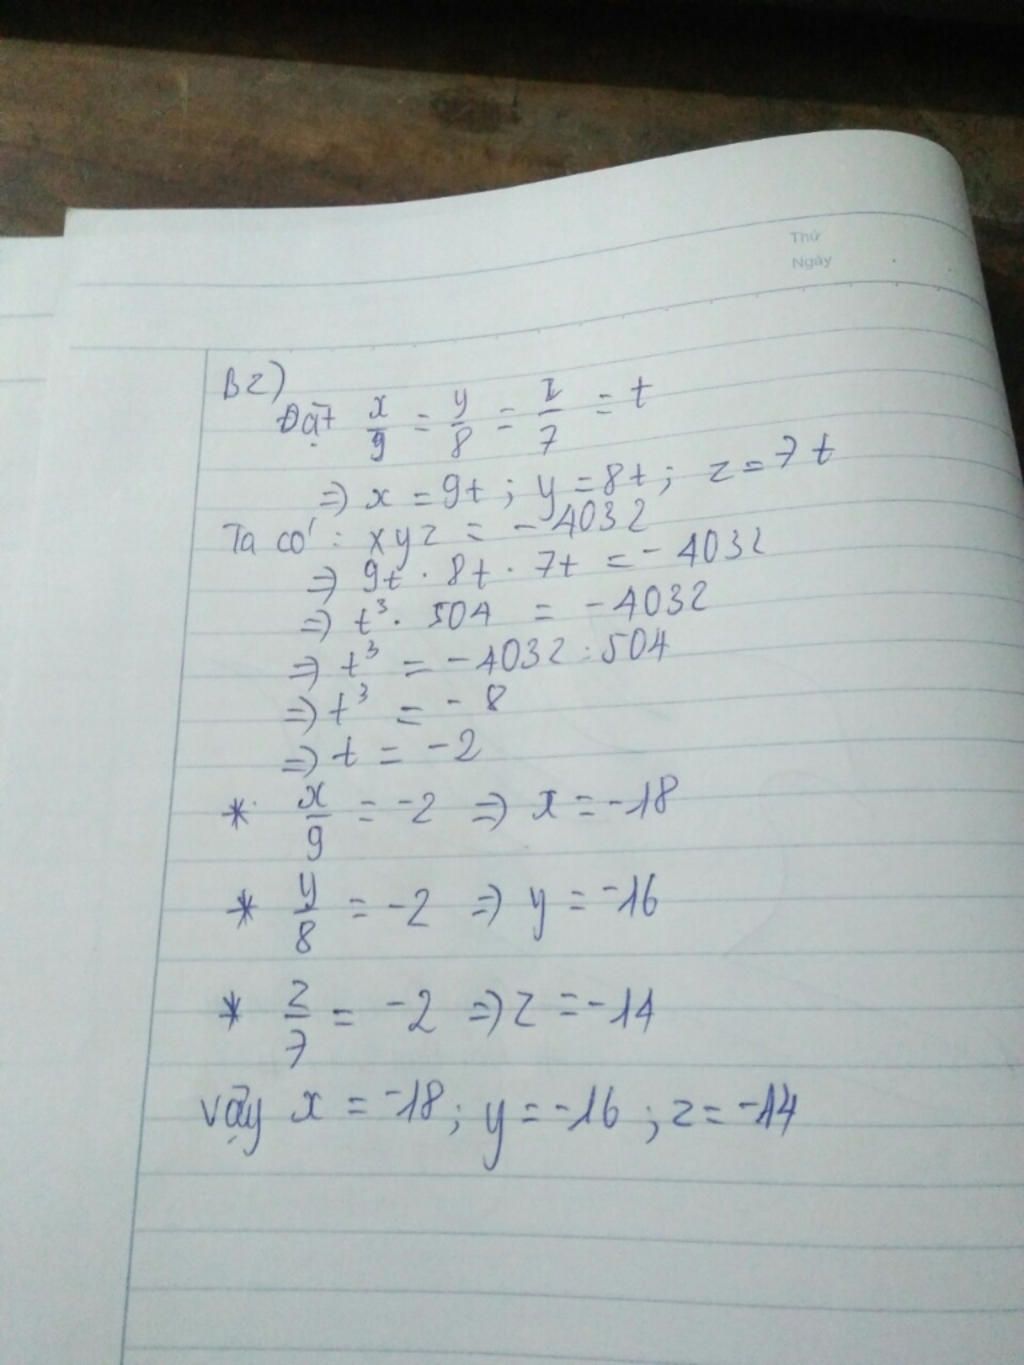 Thứ
Ngày
B2)
Đặt x/9 = y/8 = z/7 = t
=> x = 9t ; y = 8t ; z = 7t
Ta có : xyz = - 4032
=> 9t . 8t . 7t = - 4032
=> t³ . 504 = - 4032
=> t³ = - 4032 : 504
=> t³ = - 8
=> t = - 2
* x/9 = -2 => x = -18
* y/8 = -2 => y = -16
* z/7 = -2 => z = -14
Vậy x = -18 ; y = -16 ; z = -14